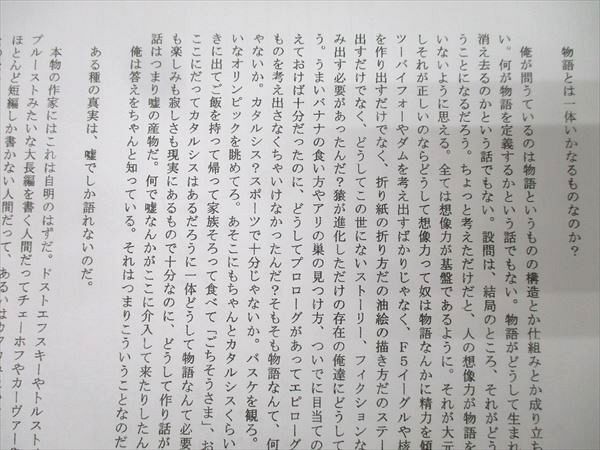 物語とは一体いかなるものなのか？
俺が問うているのは物語というものの構造とか仕組みとか成り立ち
い。何が物語を定義するかという話でもない。物語がどうして生まれ
消え去るのかという話でもない。設問は、結局のところ、それがどう
うことになるだろう。ちょっと考えただけだと、人の想像力が物語を
いないように思える。全ては想像力が基盤であるように。それが大元
しそれが正しいのならどうして想像力って奴は物語なんかに精力を傾
ツーバイフォーやダムを考え出すばかりじゃなく、Ｆ５イーグルや核
を作り出すだけでなく、折り紙の折り方だの油絵の描き方だのステー
出すだけでなく、どうしてこの世にないストーリー、フィクションな
み出す必要があったんだ？猿が進化しただけの存在の俺達にどうして
う。うまいバナナの食い方やアリの巣の見つけ方、ついでに目当ての
えておけば十分だったのに、どうしてプロローグがあってエピローグ
ものを考え出さなくちゃいけなかったんだ？そもそも物語なんて、何
やないか。カタルシス？スポーツで十分じゃないか。バスケを観ろ。
いなオリンピックを眺めてろ。あそこにもちゃんとカタルシスくらい
きに出てご飯を持って帰って家族そろって食べて「ごちそうさま」、お
ここにだってカタルシスはあるだろうに一体どうして物語なんて必要
も楽しみも寂しさも現実にあるもので十分なのに、どうして作り話が
話はつまり嘘の産物だ。何で嘘なんかがここに介入して来たりしたん
俺は答えをちゃんと知っている。それはつまりこういうことなのだ
ある種の真実は、嘘でしか語れないのだ。
本物の作家にはこれは自明のはずだ。ドストエフスキーやトルスト
プルーストみたいな大長編を書く人間だってチェーホフやカーヴァー
ほとんど短編しか書かない人間だって、あるいは